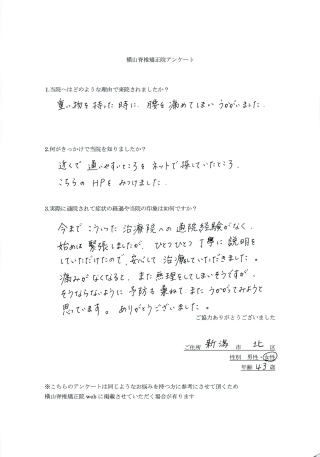 横山脊椎矯正院アンケート
1.当院へはどのような理由で来院されましたか？
重い物を持った時に、腰を痛めてしまい うかがいました.
2.何がきっかけで当院を知りましたか？
近くで 通いやすいところを ネットで 探していたところ、
こちらの HPを みつけました.
3.実際に通院されて症状の経過や当院の印象は如何ですか？
今まで こういった 治療院への 通院経験がなく、
始めは 緊張しましたが、ひとつひとつ 丁寧に 説明を
していただけたので、安心して 治療していただきました。
痛みがなくなると、また 無理をしてしまいそうですが、
そうならないように 予防も兼ねて、また うかがってみようと
思っています。ありがとうございました。
ご協力ありがとうございました
ご住所 新潟 市 北 区
性別 男性・女性
年齢 43 歳
※こちらのアンケートは同じようなお悩みを持つ方に参考にさせて頂くため
横山脊椎矯正院 web に掲載させていただく場合が有ります